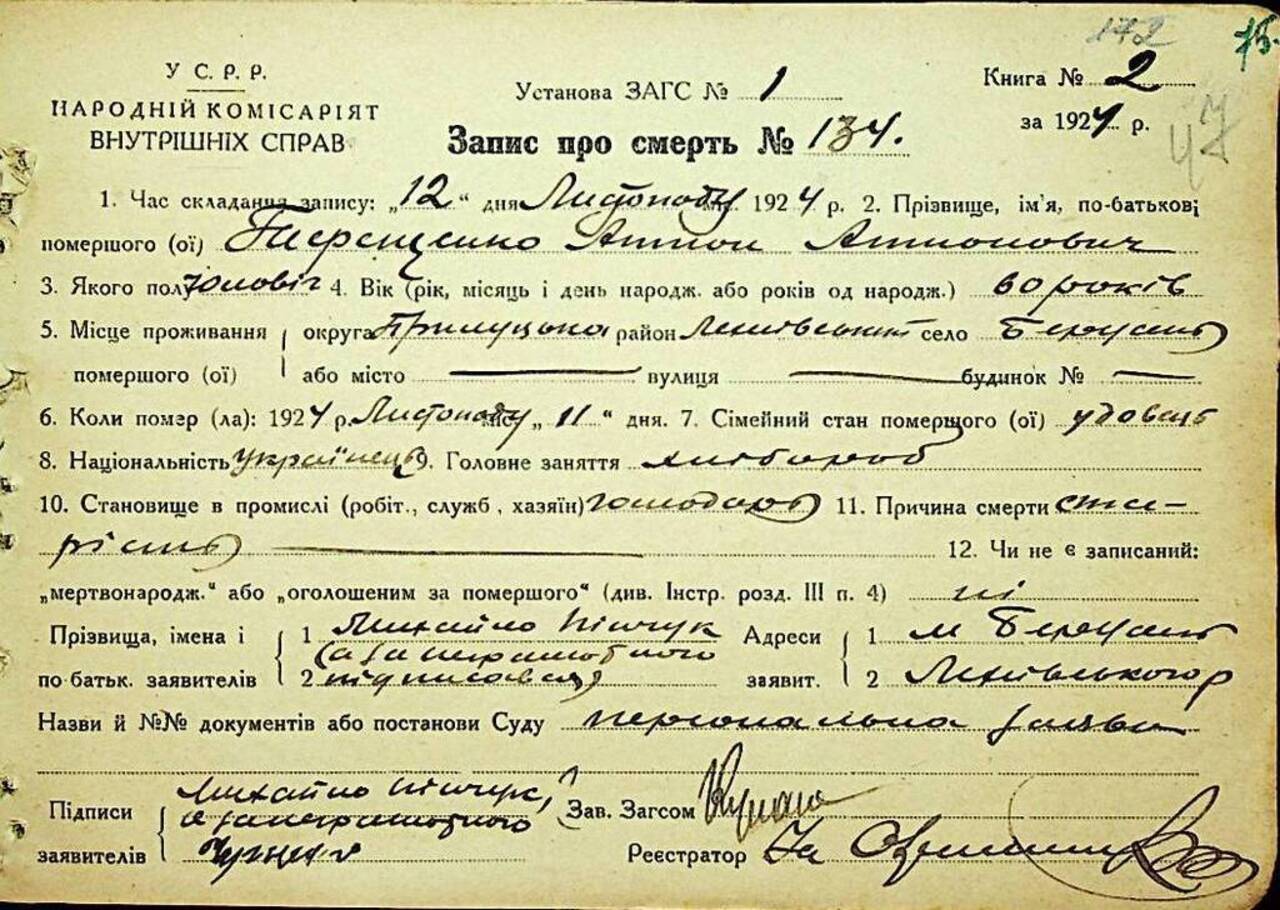 172 75.
У С. Р. Р.
НАРОДНІЙ КОМІСАРІЯТ
ВНУТРІШНІХ СПРАВ
Установа ЗАГС № 1
Книга № 2
за 1924 р.
47
Запис про смерть № 134.
1. Час складання запису: „12“ дня Листопаду 1924 р. 2. Прізвище, ім'я, по-батькові
помершого (ої) Терещенко Антон Антонович
3. Якого полу чоловіч 4. Вік (рік, місяць і день народж. або років од народж.) 60 років
5. Місце проживання округа Прилуцька район село
помершого (ої) або місто — вулиця — будинок № —
6. Коли помер (ла): 1924 р. Листопаду міс. „11“ дня. 7. Сімейний стан помершого (ої) удовець
8. Національність українець 9. Головне заняття хлібороб
10. Становище в промислі (робіт., служб, хазяїн) господарь 11. Причина смерти ста-
рість — 12. Чи не є записаний:
„мертвонародж.“ або „оголошеним за помершого“ (див. Інстр. розд. III п. 4) ні
Прізвища, імена і 1 Михайло Адреси 1 м
(а за неграмотного
по батьк. заявителів 2 підписався) заявит. 2
Назви й №№ документів або постанови Суду персональна заява
Підписи Михайло Зав. Загсом
а за неграмотного
заявителів Реєстратор За